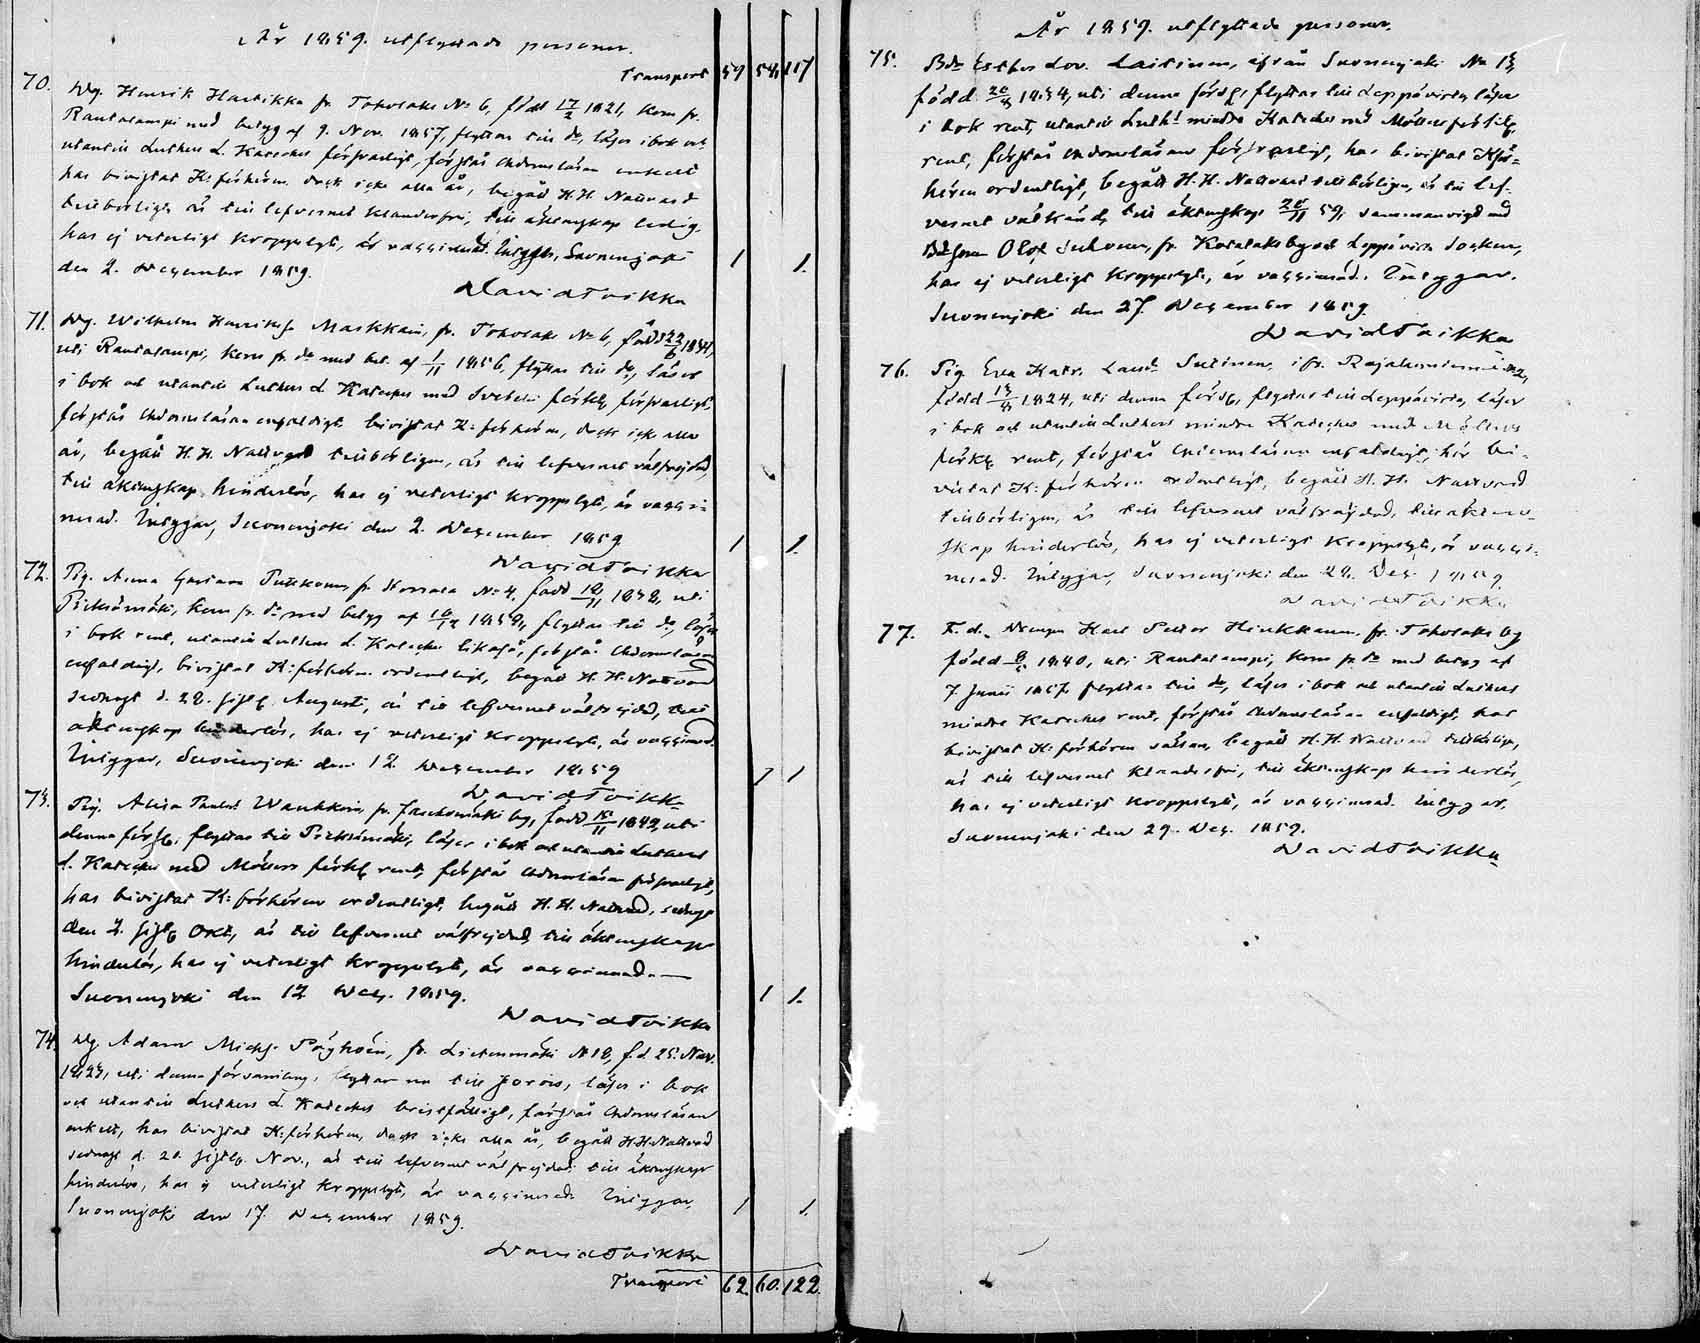 År 1859. utflyttade personer.
Transport 59 58 117
70. Dg. Henrik Hartikka fr. Toholaks No 6, född 17/2 1821, kom fr.
Rautalampi med betyg af 9. Nov. 1857, flyttar till do, läser i bok och
utantill Luthers L. Kateches försvarligt, förstår Chdomsläran enkelt
har bivistat K: förhören dock icke alla år, begått H. H. Nattvard
tillbörligt, är till lefvernet klanderfri, till äktenskap ledig,
har ej veterligt kroppslyte, är vaccinerad. Intygar, Suonenjoki 1 1.
den 2. December 1859.
David Toikka
71. Dg. Wilhelm Henriksson Markkain, fr. Toholaks No 6, född 22/6
uti Rautalampi, kom fr. do med bet. af 1/11 1856, flyttar till do, läser
i bok och utantill Luthers L Kateches med Svebelii förkl. försvarligt,
förstår Chdomsläran enfaldigt bivistat K: förhören, dock icke alla
år, begått H. H. Nattvard tillbörligen, är till lefvernet välfrejdad,
till äktenskap hinderlös, har ej veterligt kroppslyte, är vacci-
nerad. Intygar, Suonenjoki den 2. December 1859 1 1.
David Toikka
72. Pig. Anna Gustava Pulkkonen, fr. No 4, född uti
Pieksämäki, kom fr. do med betyg af flyttar till do, läser
i bok rent, utantill Luthers L. Kateches likaså, förstår Chdomsläran
enfaldigt, bivistat K: förhören ordentligt, begått H. H. Nattvard
sednast d. 28. sistl. Augusti, är till lefvernet välfrejdad, till
äktenskap hinderlös, har ej veterligt kroppslyte, är vaccinerad.
Intygar, Suonenjoki den 12 December 1859 1 1
David Toikka
73. Pig. Paulsd. fr. by, född uti
denna förs., flyttar till Pieksämäki, läser i bok och utantill Luthers
L. Kateches med Möllers förkl. rent, förstår Chdomsläran försvarligt,
har bivistat K: förhören ordentligt, begått H. H. Nattvard, sednast
den 2. sistl. Okt., är till lefvernet välfrejdad, till äktenskap
hinderlös, har ej veterligt kroppslyte, är vaccinerad.
Suonenjoki den 12 Dec. 1859. 1 1.
David Toikka
74. Dg Adam Michss. Pöyhöin, fr. Lietenmäki No 18, f. d. 25. Nov.
uti denna församling, flyttar nu till Jorois, läser i bok
och utantill Luthers L. Kateches bristfälligt, förstår Chdomsläran
enkelt, har bivistat K: förhören, dock icke alla år, begått H. H. Nattvard
sednast d. 20. sistl. Nov., är till lefvernet välfrejdad, till äktenskap
hinderlös, har ej veterligt kroppslyte, är vaccinerad. Intygar, 1 1.
Suonenjoki den 17. December 1859.
David Toikka
Transport 62. 60. 122.
År 1859. utflyttade personer.
75. Bdr Esther Lov. Laitinen, ifrån Suonenjoki No 13,
född uti denna förs., flyttar till Leppävirta, läser
i bok rent, utantill Luths mindre Kateches med Möllers förkl.
rent, förstår Chdomsläran försvarligt, har bivistat Kför-
hören ordentligt, begått H. H. Nattvard tillbörligen, är till lef-
vernet välkänd, till äktenskap 20/11 59, sammanvigd med
Olof fr. Kotalaks by och Leppävirta Socken,
har ej veterligt kroppslyte, är vaccinerad. Intygar.
Suonenjoki den 27. December 1859.
David Toikka
76. Pig. Eva Katr. Laursd. Sutinen, ifr. Rajalanniemi No 2,
född uti denna förs., flyttar till Leppävirta, läser
i bok och utantill Luthers mindre Kateches med Möllers
förkl. rent, förstår Chdomsläran enfaldigt, har bi-
vistat K: förhören ordentligt, begått H. H. Nattvard
tillbörligen, är till lefvernet välfrejdad, till äkten-
skap hinderlös, har ej veterligt kroppslyte, är vacci-
nerad. Intygar, Suonenjoki den 28. Dec. 1859
David Toikka
77. F. d. Drengen Karl Petter Hinkkanen, fr. Toholaks by
född 1840, uti Rautalampi, kom fr. do med betyg af
7 Junii 1857 flyttar till do, läser i bok och utantill Luthers
mindre Kateches rent, förstår Chdomsläran enfaldigt, har
bivistat K: förhören sällan, begått H. H. Nattvard tillbörligen,
är till lefvernet klanderfri, till äktenskap hinderlös,
har ej veterligt kroppslyte, är vaccinerad. Intygar,
Suonenjoki den 29. Dec. 1859.
David Toikka